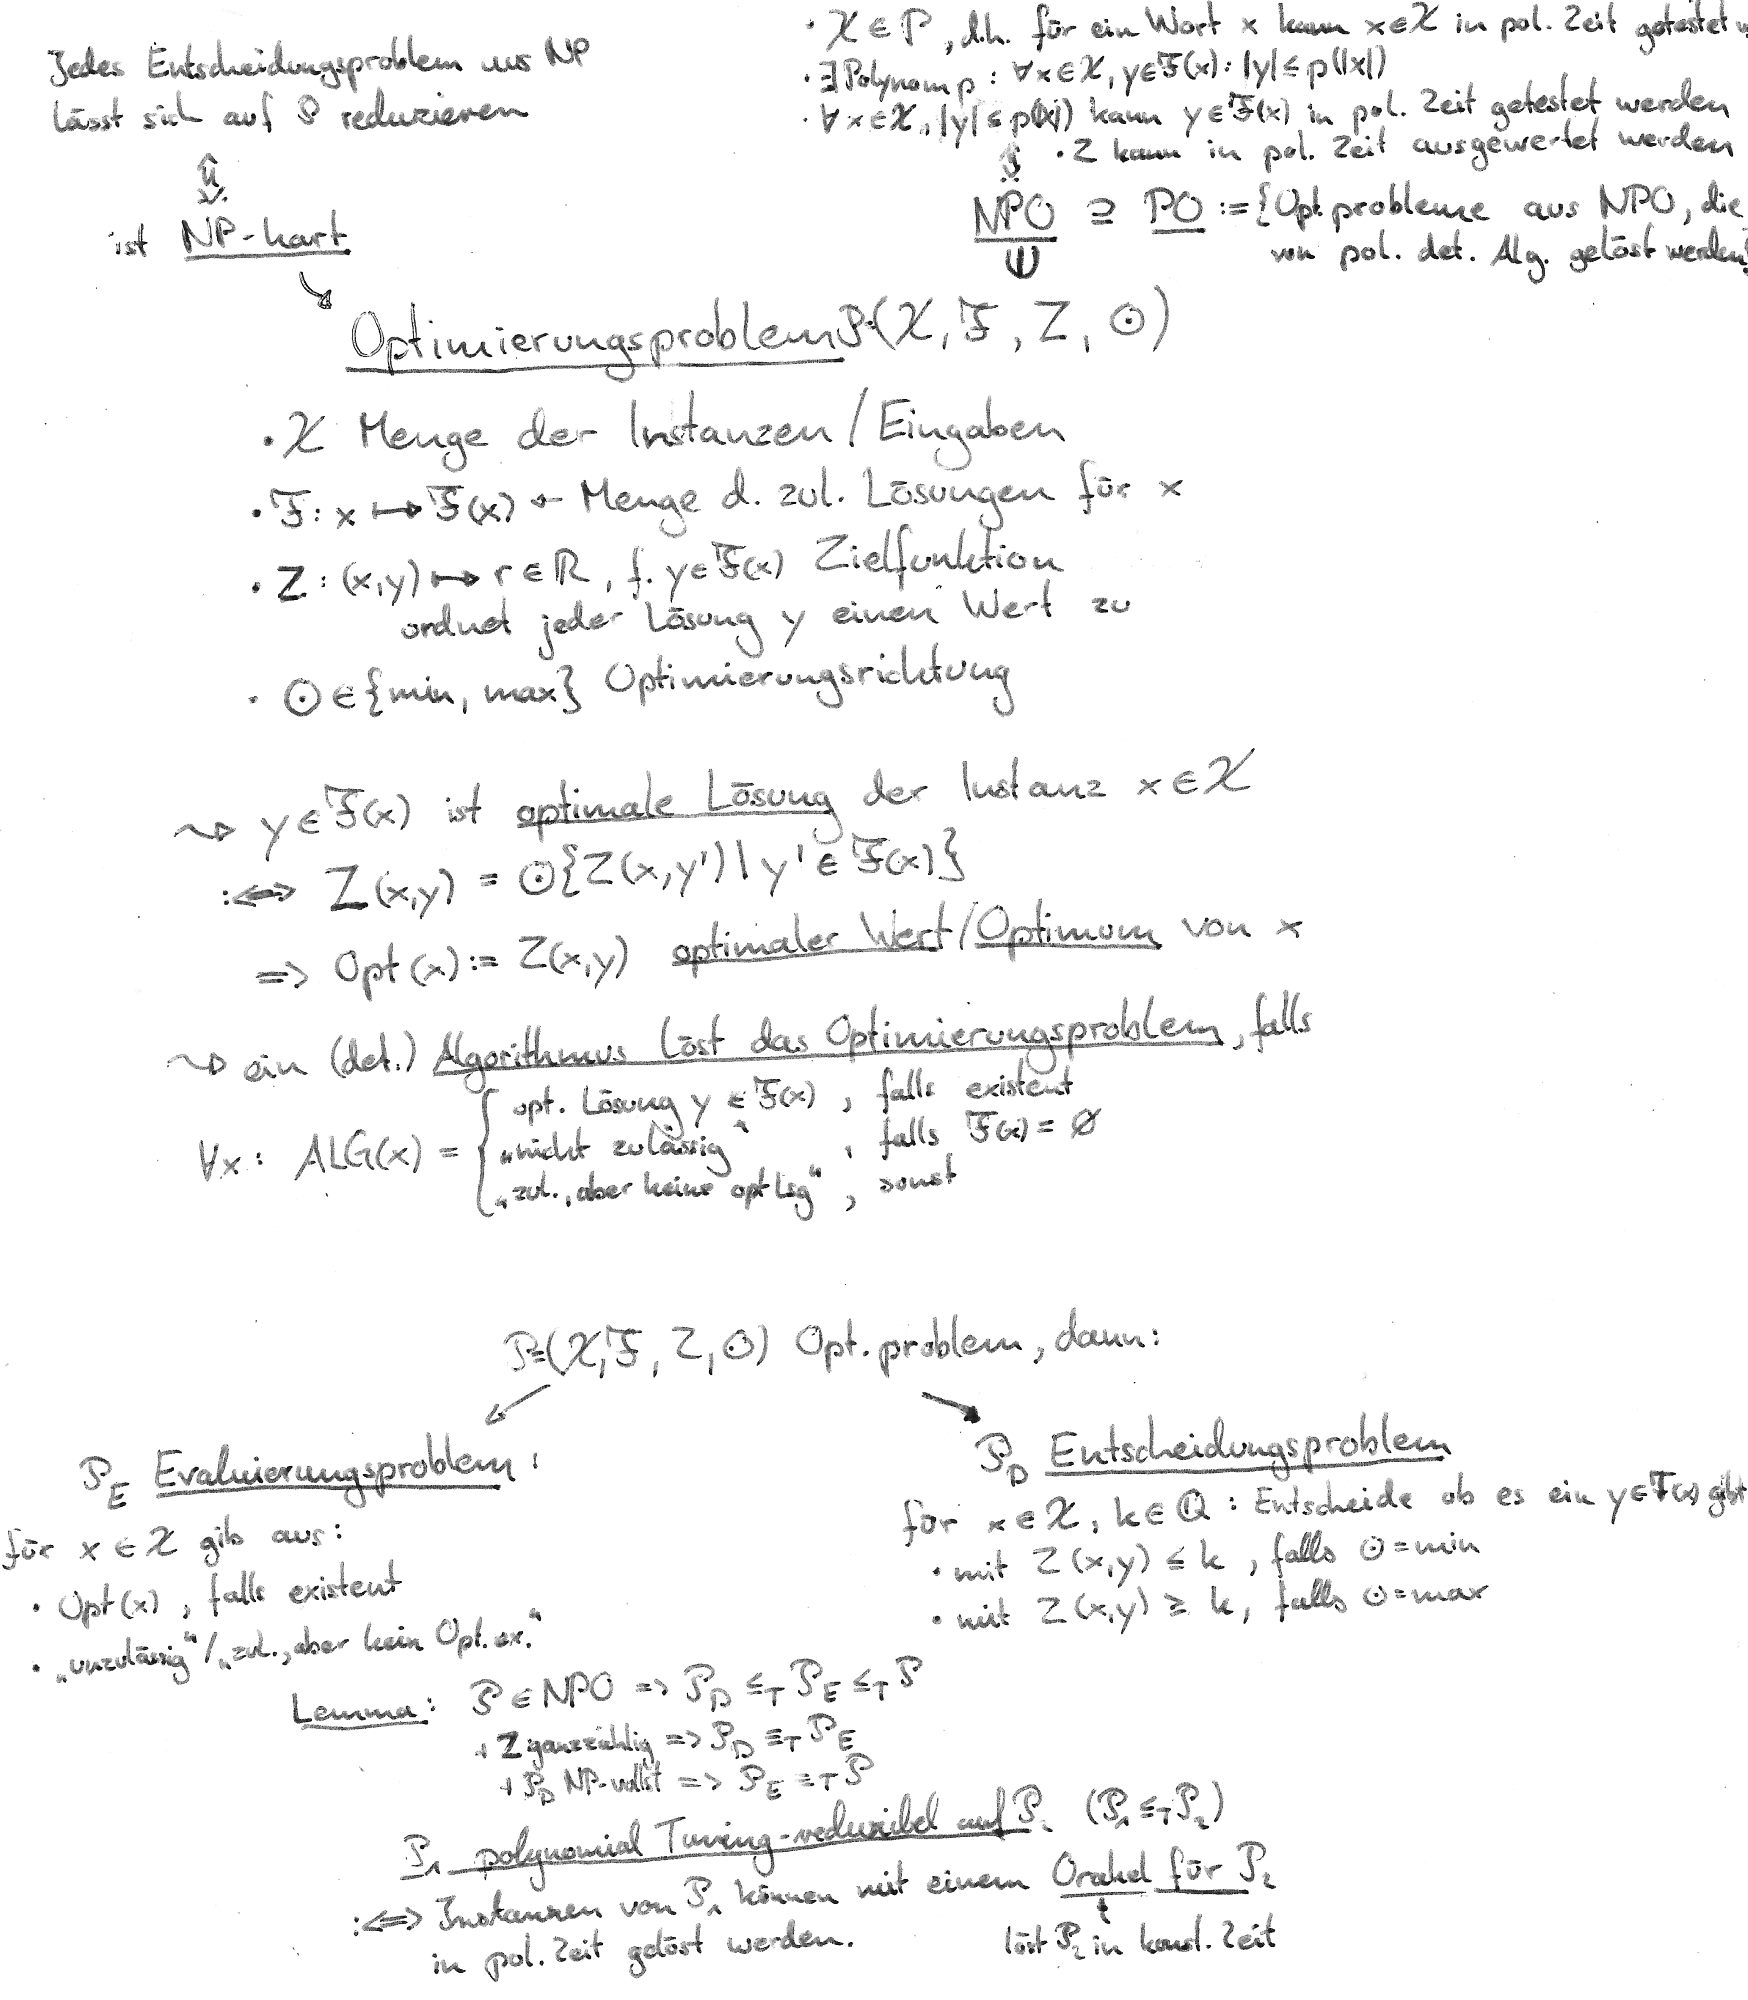 Jedes Entscheidungsproblem aus NP
lässt sich auf P reduzieren
⇕
ist NP-hart
· X ∈ P, d.h. für ein Wort x kann x∈X in pol. Zeit getestet
· ∃ Polynom p : ∀x∈X, y∈F(x) : |y| ≤ p(|x|)
· ∀x∈X, |y| ≤ p(|x|) kann y∈F(x) in pol. Zeit getestet werden
· Z kann in pol. Zeit ausgewertet werden
NPO ⊇ PO := {Opt.probleme aus NPO, die
von pol. det. Alg. gelöst werden}
Optimierungsproblem P=(X, F, Z, ⊙)
· X Menge der Instanzen/Eingaben
· F: x ↦ F(x) ← Menge d. zul. Lösungen für x
· Z : (x,y) ↦ r ∈ ℝ, f. y∈F(x) Zielfunktion
ordnet jeder Lösung y einen Wert zu
· ⊙ ∈ {min, max} Optimierungsrichtung
⇝ y∈F(x) ist optimale Lösung der Instanz x∈X
:⇔ Z(x,y) = ⊙{Z(x,y') | y' ∈ F(x)}
=> Opt(x) := Z(x,y) optimaler Wert/Optimum von x
⇝ ein (det.) Algorithmus löst das Optimierungsproblem, falls
∀x: ALG(x) = { opt. Lösung y ∈ F(x) , falls existent
„nicht zulässig“ , falls F(x) = ∅
„zul., aber keine opt Lsg“ , sonst
P=(X, F, Z, ⊙) Opt.problem, dann:
P_E Evaluierungsproblem:
für x ∈ X gib aus:
· Opt(x), falls existent
· „unzulässig“/„zul., aber kein Opt. ex.“
P_D Entscheidungsproblem
für x∈X, k∈ℚ : Entscheide ob es ein y∈F(x) gibt
· mit Z(x,y) ≤ k, falls ⊙=min
· mit Z(x,y) ≥ k, falls ⊙=max
Lemma: P ∈ NPO => P_D ≤_T P_E ≤_T P
+ Z ganzzahlig => P_D ≡_T P_E
+ P_D NP-vollst => P_E ≡_T P
P₁ polynomial Turing-reduzibel auf P₂ (P₁ ≤_T P₂)
:⇔ Instanzen von P₁ können mit einem Orakel für P₂
in pol. Zeit gelöst werden.
löst P₂ in konst. Zeit